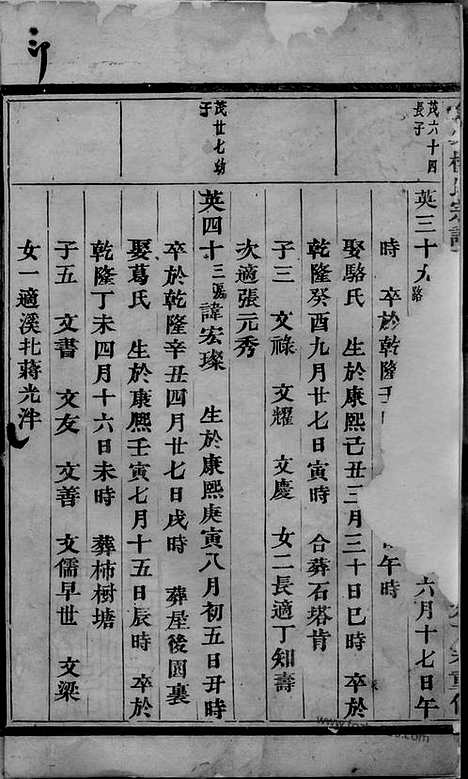 茂六十四
長子
英三十九 六月十七日午
時 卒於乾隆壬 午時
娶駱氏 生於康熙己丑三月三十日巳時 卒於
乾隆癸酉九月廿七日寅時 合葬石塔肯
子三 文祿 文耀 文慶 女二長適丁知壽
次適張元秀
茂廿七幼
子
英四十三號 諱宏璨 生於康熙庚寅八月初五日丑時
卒於乾隆辛丑四月廿七日戌時 葬屋後園裏
娶葛氏 生於康熙壬寅七月十五日辰時 卒於
乾隆丁未四月十六日未時 葬柿樹塘
子五 文書 文友 文善 文儒早世 文梁
女一適溪北蔣光泮